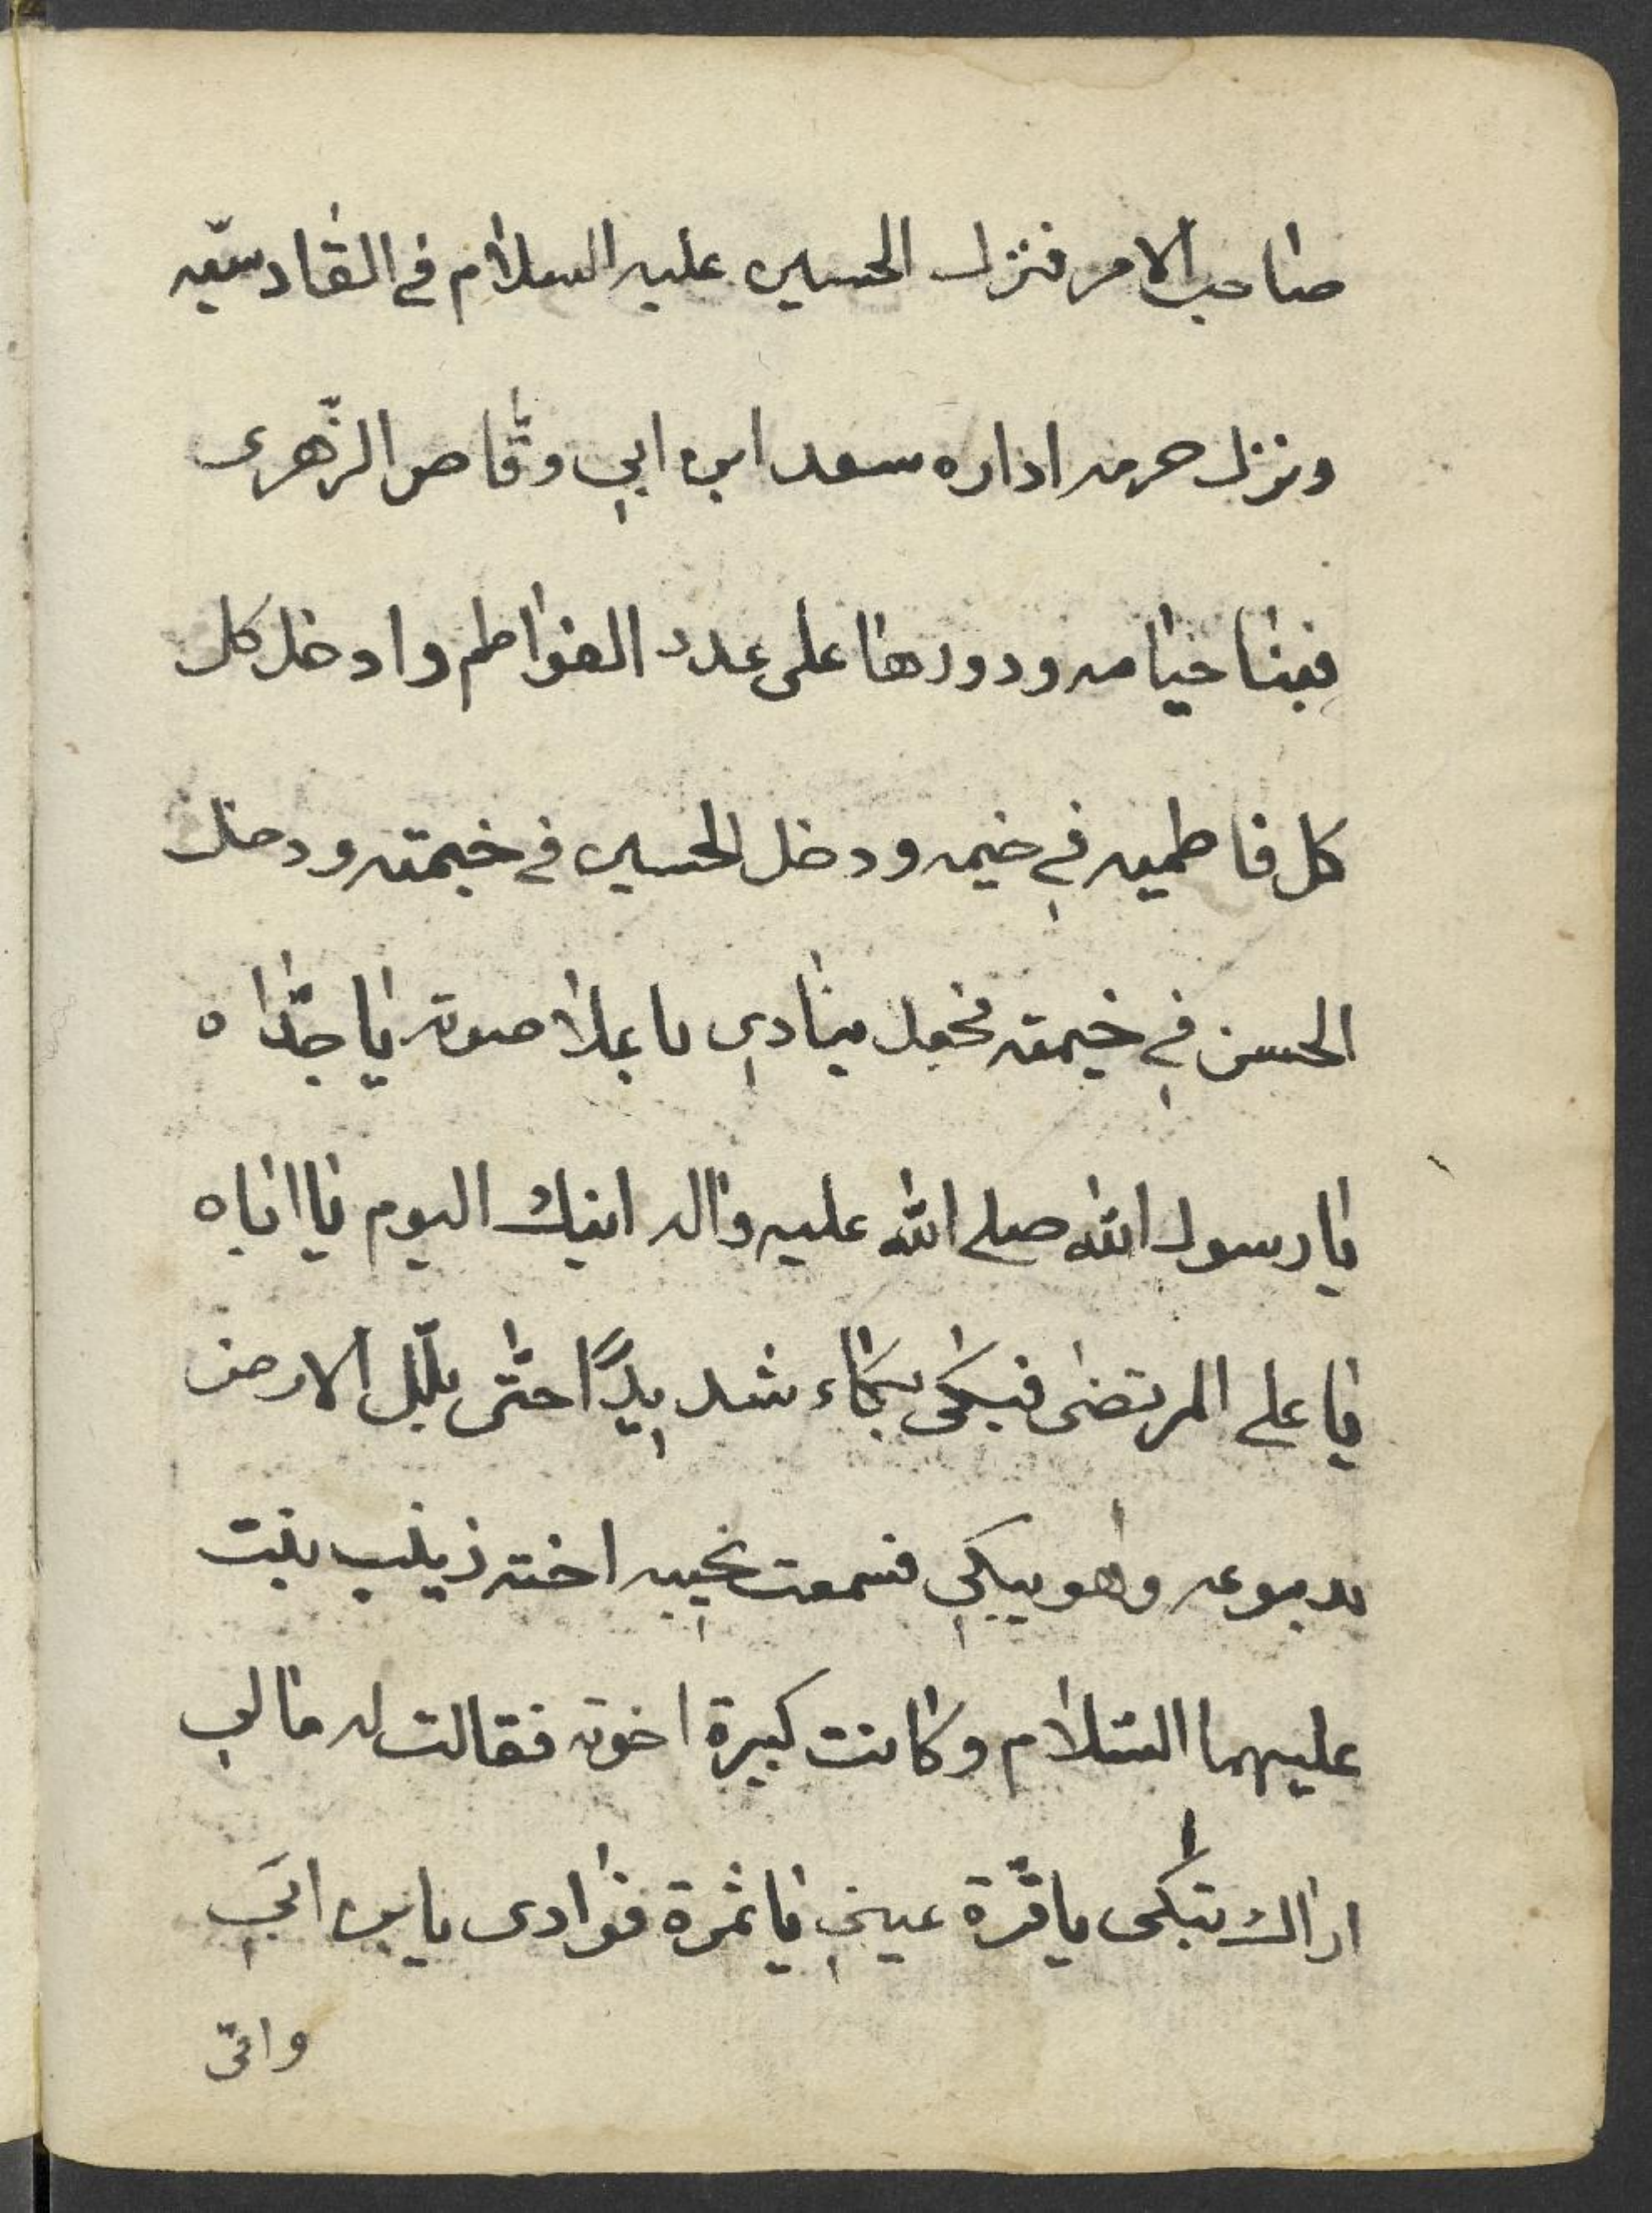 صاحب الامر فنزل الحسين عليه السلام في القادسيّه
ونزل حرمه اداره سعد ابن ابي وقّاص الزّهرى
فبنا خيامه ودورها على عدد الفواطم وادخل كل
كل فاطميه في خيمه ودخل الحسين في خيمته ودخل
الحسن في خيمته فجعل ينادي باعلا صوته يا جدّاه
يا رسول الله صلى الله عليه واله ابنك اليوم يا اباه
يا علي المرتضى فبكى بكاء شديدًا حتّى بلّل الارض
بدموعه وهو يبكي فسمعت نحيبه اخته زينب بنت
عليهما السّلام وكانت كبيرة اخوته فقالت له مالي
اراك تبكى يا قرّة عيني يا ثمرة فوادى يا بن ابي
وانّى